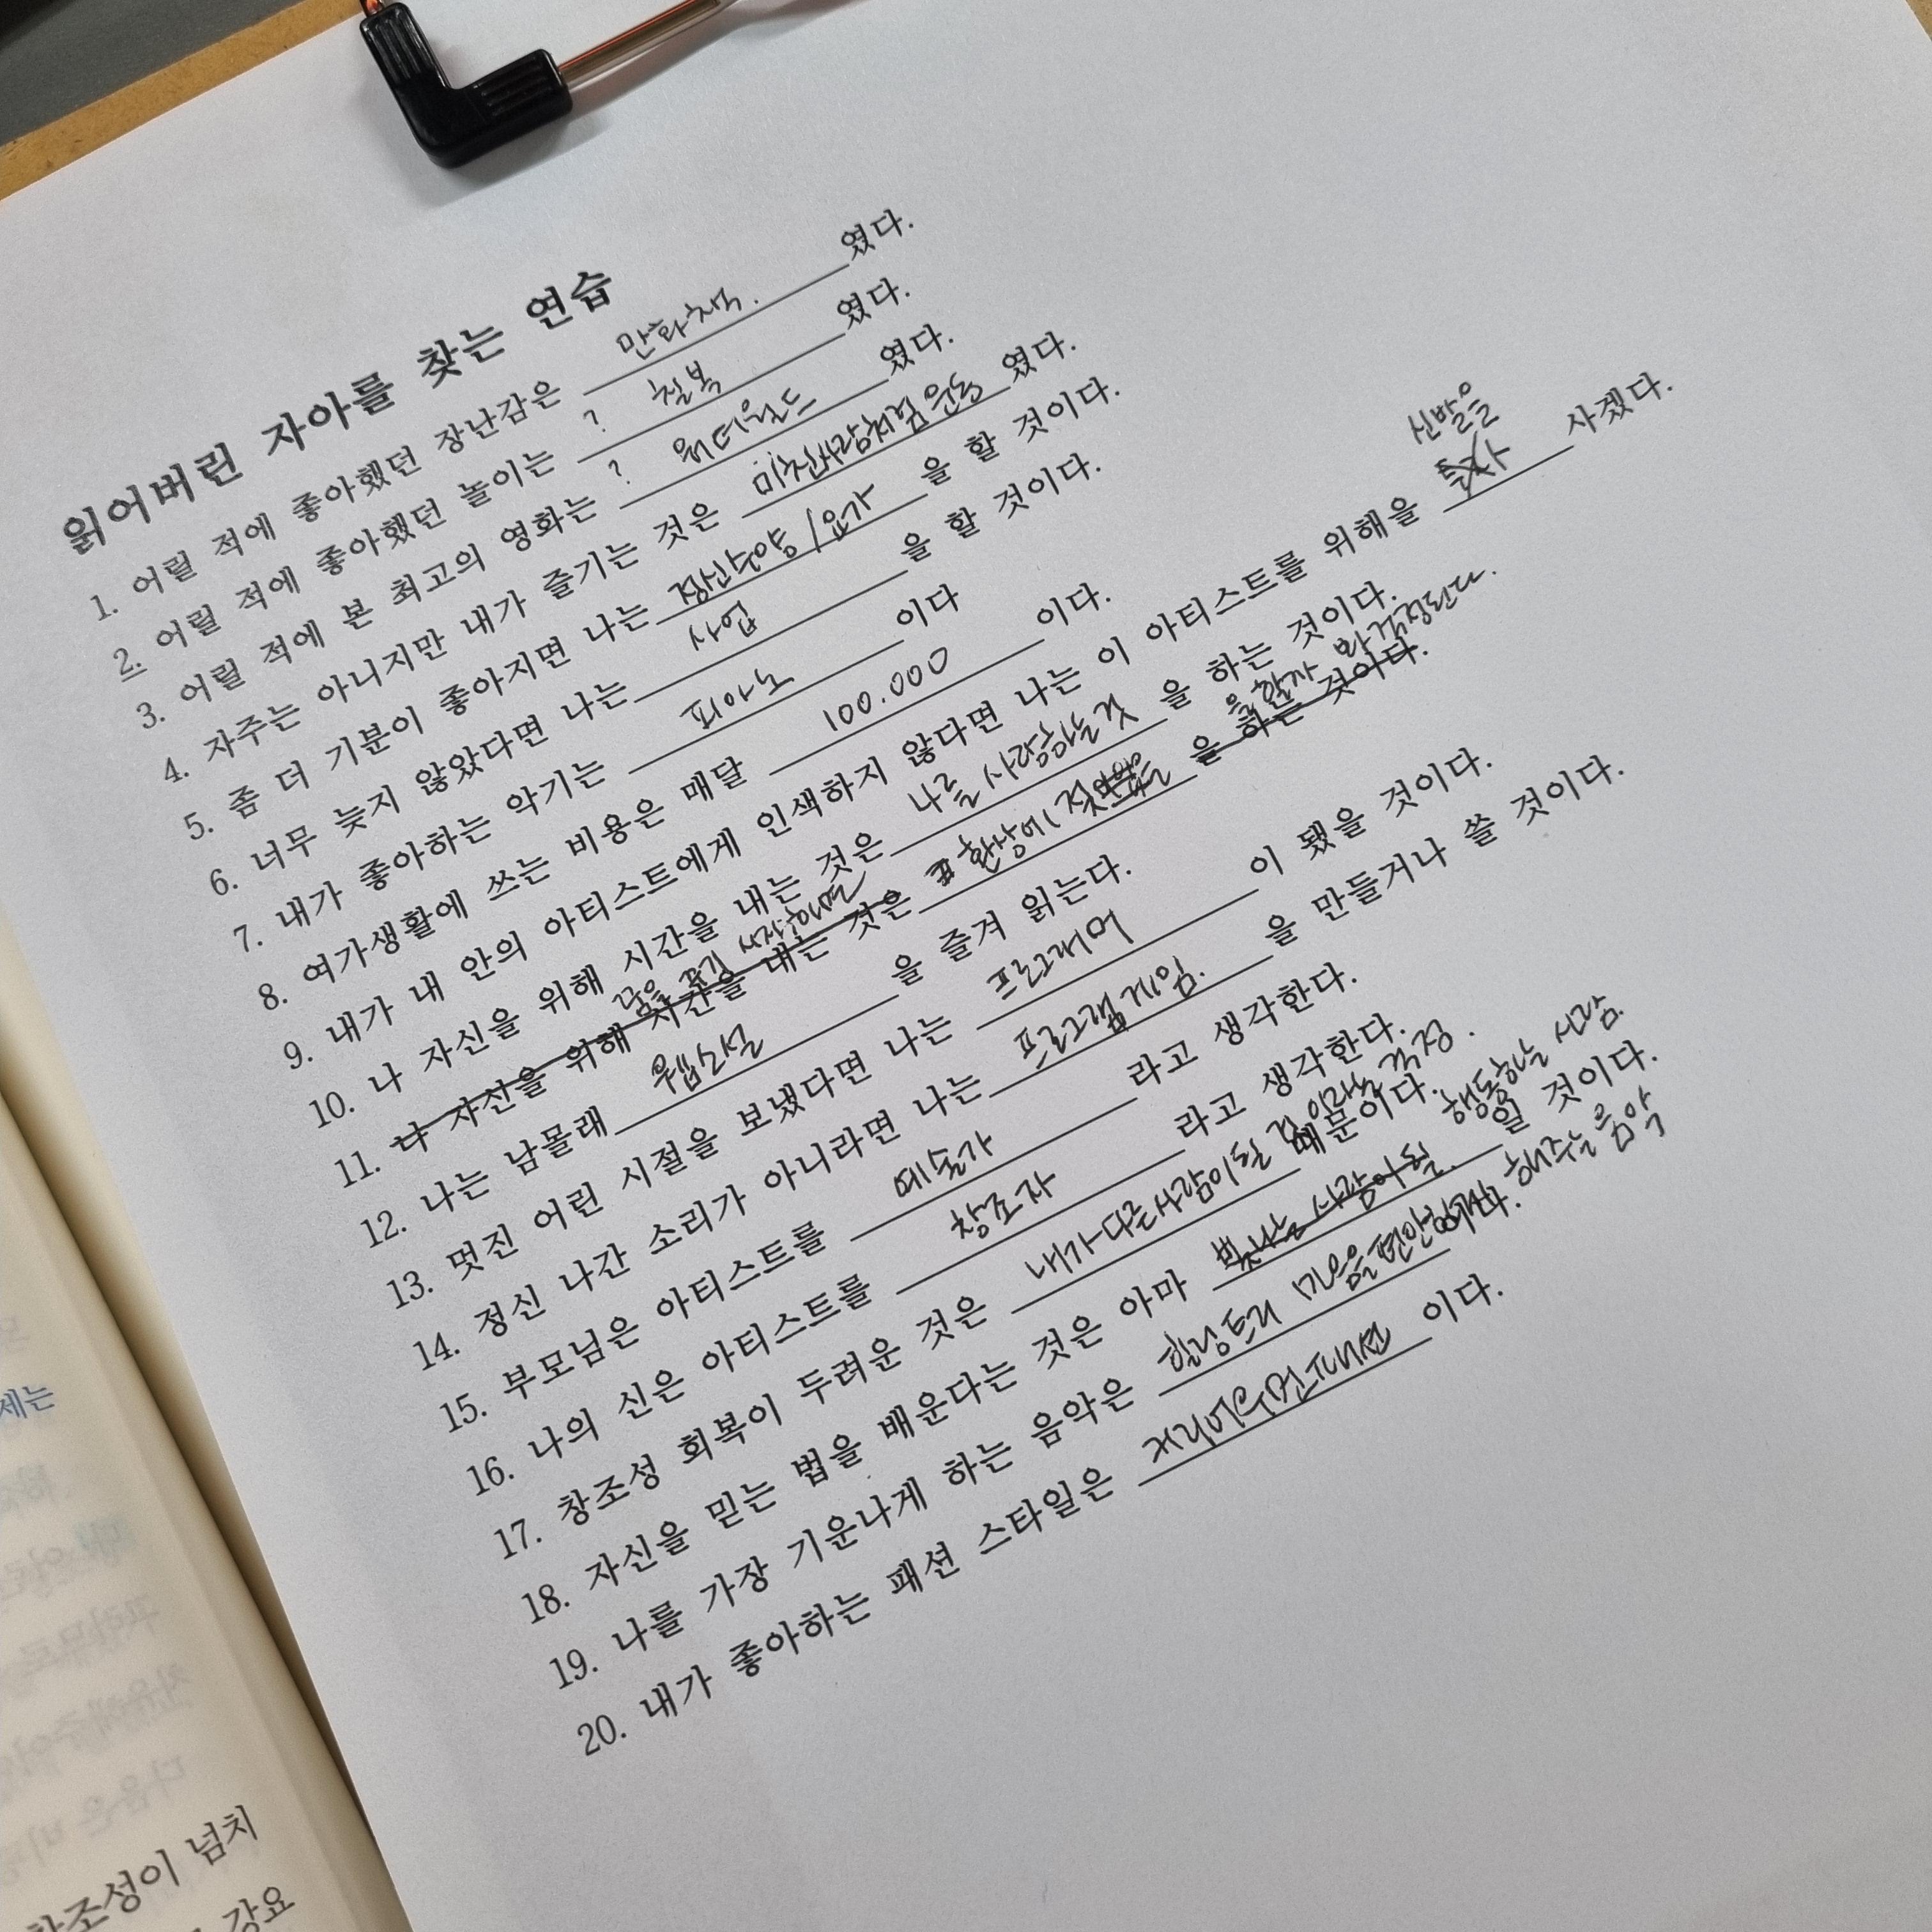 읽어버린 자아를 찾는 연습
1. 어릴 적에 좋아했던 장난감은 만화책. 였다.
2. 어릴 적에 좋아했던 놀이는 ? 칠복 였다.
3. 어릴 적에 본 최고의 영화는 ? 워터월드 였다.
4. 자주는 아니지만 내가 즐기는 것은 미친사람처럼 운동 였다.
5. 좀 더 기분이 좋아지면 나는 정신수양/요가 을 할 것이다.
6. 너무 늦지 않았다면 나는 사업 을 할 것이다.
7. 내가 좋아하는 악기는 피아노 이다
8. 여가생활에 쓰는 비용은 매달 100.000 이다.
9. 내가 내 안의 아티스트에게 인색하지 않다면 나는 이 아티스트를 위해을 신발을 사겠다.
10. 나 자신을 위해 시간을 내는 것은 나를 사랑하는 것 을 하는 것이다.
11. 나 자신을 위해 시간을 내는 것은 을 하는 것이다.
꿈을 꾸기 시작하면 환상에 을 할까 봐 걱정된다.
12. 나는 남몰래 웹소설 을 즐겨 읽는다.
13. 멋진 어린 시절을 보냈다면 나는 프로그래머 이 됐을 것이다.
14. 정신 나간 소리가 아니라면 나는 프로그램 게임. 을 만들거나 쓸 것이다.
15. 부모님은 아티스트를 예술가 라고 생각한다.
16. 나의 신은 아티스트를 창조자 라고 생각한다.
17. 창조성 회복이 두려운 것은 내가 다른 사람이 될 것 이라는 걱정. 때문이다.
18. 자신을 믿는 법을 배운다는 것은 아마 빛나는 사람이 될. 행동하는 사람. 일 것이다.
19. 나를 가장 기운나게 하는 음악은 힐링도리 마음을 편안하게 해주는 음악
20. 내가 좋아하는 패션 스타일은 이다.
세는
창조성이 넘치
강요